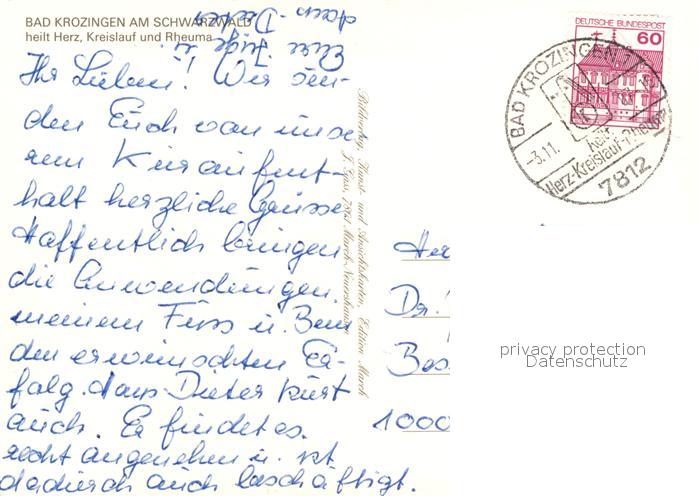 BAD KROZINGEN AM SCHWARZWALD
heilt Herz, Kreislauf und Rheuma
Ihr Lieben! Wir sen-
den Euch von unse
rem Kuraufent-
halt herzliche Grüsse
Hoffentlich bringen
die Anwendungen
meinem Fuss u. Bein
den erwünschten Er-
folg. Hans-Dieter kurt
auch. Er findet es
recht angenehm u. ist
dadurch auch beschäftigt.
Eure Inge u.
Hans-Dieter
Bildverlag, Kunst- und Ansichtskarten, Edition March
7801 March-Neuershausen
DEUTSCHE BUNDESPOST
60
BAD KROZINGEN
-3.11.
heilt
Herz-Kreislauf-Rheuma
7812
Her
Dr.
1000
privacy protection
Datenschutz